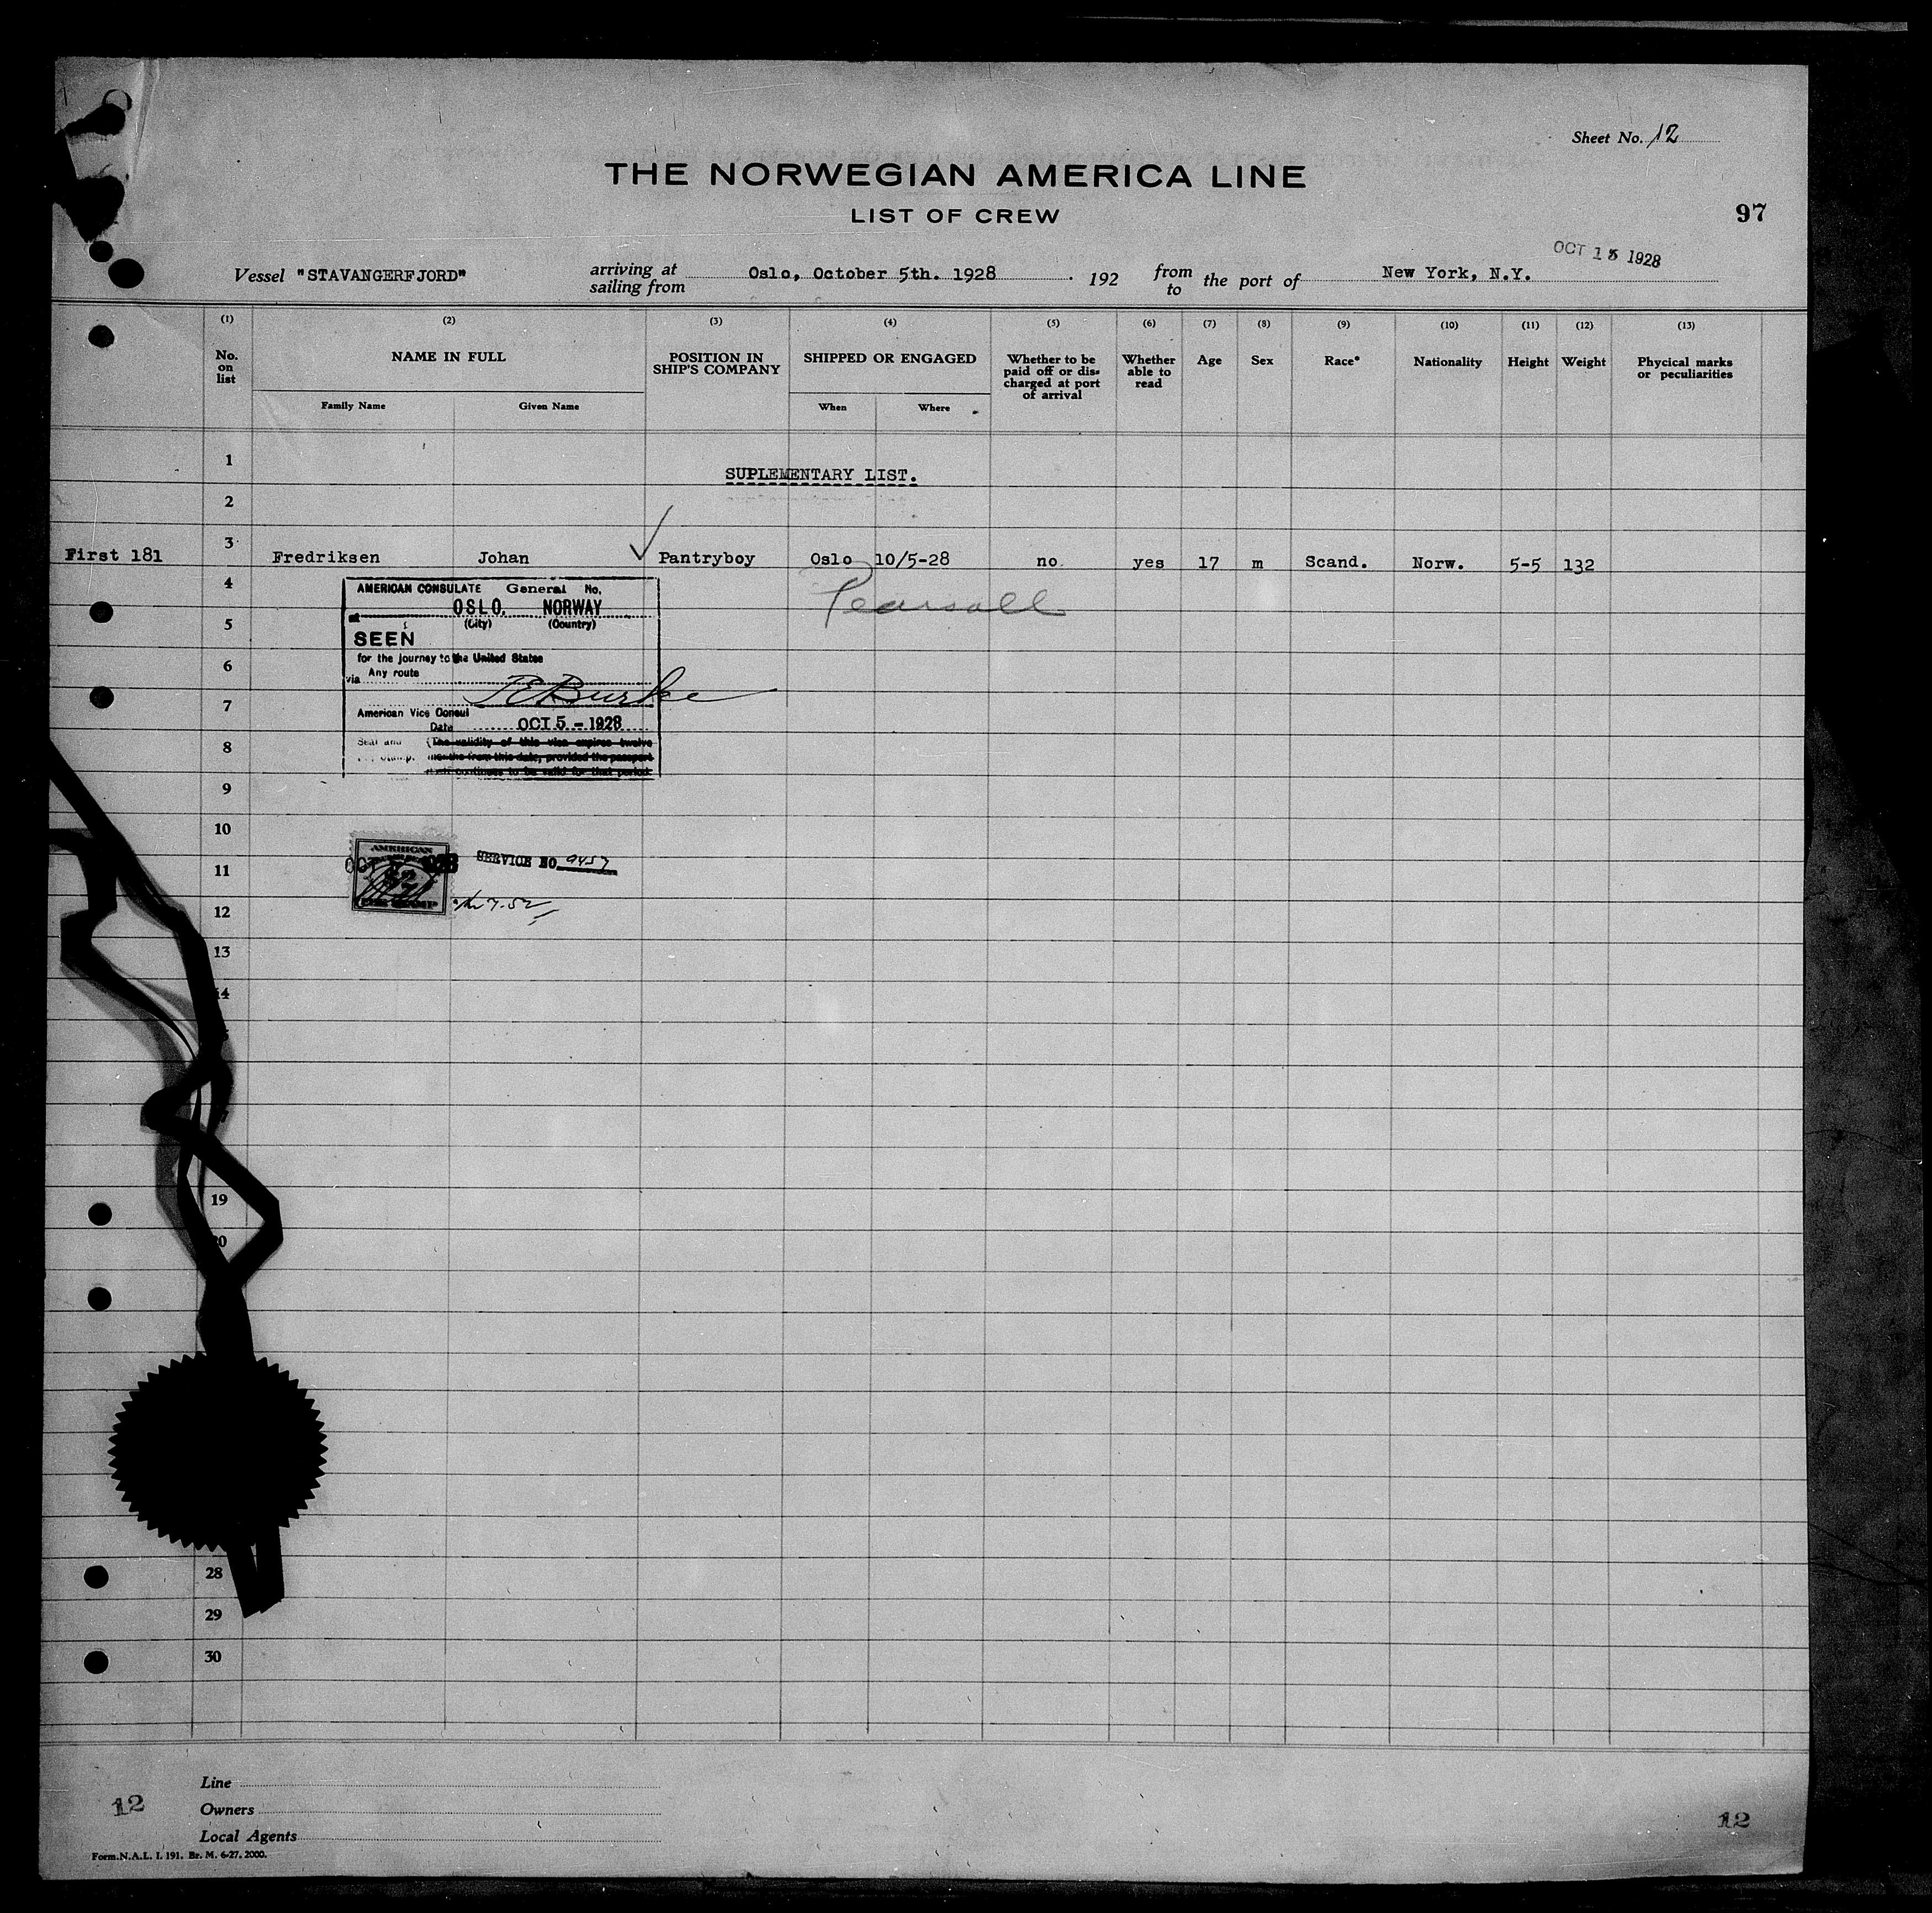 Sheet No. 12
THE NORWEGIAN AMERICA LINE
LIST OF CREW
97
OCT 15 1928
Vessel "STAVANGERFJORD" arriving at sailing from Oslo, October 5th. 1928 192 from to the port of New York, N.Y.
(1) (2) (3) (4) (5) (6) (7) (8) (9) (10) (11) (12) (13)
No. on list NAME IN FULL POSITION IN SHIP'S COMPANY SHIPPED OR ENGAGED Whether to be paid off or dis-charged at port of arrival Whether able to read Age Sex Race* Nationality Height Weight Phycical marks or peculiarities
Family Name Given Name When Where
1
SUPLEMENTARY LIST.
2
First 181 3 Fredriksen Johan Pantryboy Oslo 10/5-28 no yes 17 m Scand. Norw. 5-5 132
4
AMERICAN CONSULATE General No.
Pearsall
at OSLO, NORWAY
5
(City) (Country)
SEEN
for the journey to the United States
6
via Any route
R E Burke
7
American Vice Consul
Date OCT 5 - 1928
8
Seal and (The validity of this visa expires twelve
stamp. months from this date, provided the passport
itself continues to be valid for that period.
9
10
AMERICAN
11
SERVICE NO. 9457
12
7.52
13
14
19
20
28
29
30
Line
12
Owners
12
Local Agents
Form.N.A.L. I. 191. Br. M. 6-27. 2000.